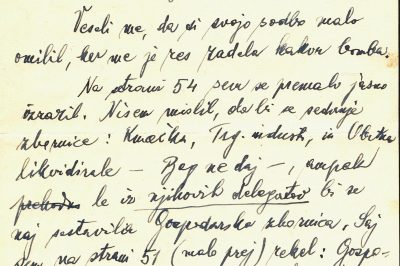 Veseli me, da si svojo sodbo malo
omilil, ker me je res zadela kakor bomba.
Na strani 54 sem se premalo jasno
izrazil. Nisem mislil, da bi se sedanje
zbornice: Kmečka, Trg. indust. in Obrtna
likvidirale – Bog ne daj –, ampak
prehodno le iz njihovih delegatov bi se
naj sestavila Gospodarska zbornica. Saj
sem na strani 51 (malo prej) rekel: Gospo-